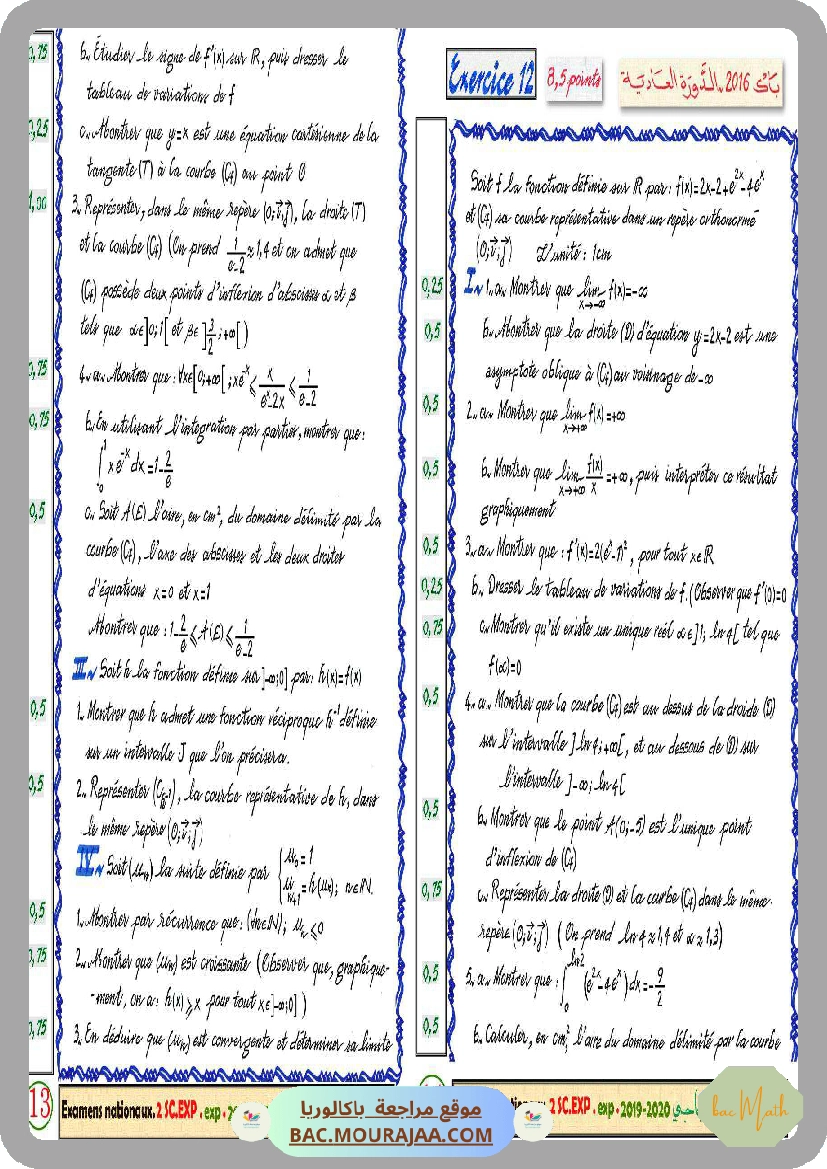 0,75
b. Étudier le signe de f'(x) sur ℝ, puis dresser le
tableau de variations de f
0,25
c. Montrer que y=x est une équation cartésienne de la
tangente (T) à la courbe (Cf) au point O
1,00
3. Représenter, dans le même repère (O;i⃗;j⃗), la droite (T)
et la courbe (Cf) (On prend 1/(e-2) ≈ 1,4 et on admet que
(Cf) possède deux points d'inflexion d'abscisses α et β
tels que α∈]0;1[ et β∈]3/2;+∞[)
0,75
4. a. Montrer que : ∀x∈[0;+∞[ ; xe^-x ≤ x/(e^x-2x) ≤ 1/(e-2)
0,75
b. En utilisant l'intégration par parties, montrer que :
∫₀¹ xe^-x dx = 1-2/e
0,5
c. Soit A(E) l'aire, en cm², du domaine délimité par la
courbe (Cf), l'axe des abscisses et les deux droites
d'équations x=0 et x=1
Montrer que : 1-2/e ≤ A(E) ≤ 1/(e-2)
III. Soit h la fonction définie sur ]-∞;0] par : h(x)=f(x)
0,5
1. Montrer que h admet une fonction réciproque h⁻¹ définie
sur un intervalle J que l'on précisera.
0,5
2. Représenter (C_h⁻¹), la courbe représentative de h, dans
le même repère (O;i⃗;j⃗)
IV. Soit (uₙ) la suite définie par { u₀=1
uₙ₊₁=h(uₙ); n∈ℕ
0,5
1. Montrer par récurrence que : (∀n∈ℕ); uₙ ≤0
0,75
2. Montrer que (uₙ) est croissante (Observer que, graphique-
-ment, on a : h(x) ≥ x pour tout x∈]-∞;0])
0,75
3. En déduire que (uₙ) est convergente et déterminer sa limite
13
Examens nationaux. 2 SC.EXP . exp .
Exercice 12
8,5 points
باك 2016 ـ الدَّوْرَة العَادِيَة
Soit f la fonction définie sur ℝ par : f(x)=2x-2+e^2x-4e^x
et (Cf) sa courbe représentative dans un repère orthonormé
(O;i⃗;j⃗) L'unité : 1cm
0,25
I. 1. a. Montrer que lim x→-∞ f(x)=-∞
0,5
b. Montrer que la droite (D) d'équation y=2x-2 est une
asymptote oblique à (Cf) au voisinage de -∞
0,5
2. a. Montrer que lim x→+∞ f(x)=+∞
0,5
b. Montrer que lim x→+∞ f(x)/x =+∞, puis interpréter ce résultat
graphiquement
0,5
3. a. Montrer que : f'(x)=2(e^x-1)², pour tout x∈ℝ
0,25
b. Dresser le tableau de variations de f. (Observer que f'(0)=0
0,75
c. Montrer qu'il existe un unique réel α∈]1; ln4[ tel que
f(α)=0
0,5
4. a. Montrer que la courbe (Cf) est au dessus de la droide (D)
sur l'intervalle ]ln4;+∞[, et au dessous de (D) sur
l'intervalle ]-∞;ln4[
0,5
b. Montrer que le point A(0;-5) est l'unique point
d'inflexion de (Cf)
0,75
c. Représenter la droite (D) et la courbe (Cf) dans le même
repère (O;i⃗;j⃗) (On prend ln4≈1,4 et α≈1,3)
0,5
5. a. Montrer que : ∫₀^ln2 (e^2x-4e^x)dx=-9/2
0,5
b. Calculer, en cm², l'aire du domaine délimité par la courbe
2 SC.EXP . exp . 2019-2020
موقع مراجعة باكالوريا
BAC.MOURAJAA.COM
bac Math